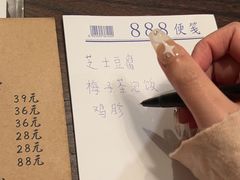 888便笺
芝士豆腐
梅子茶泡饭
鸡胗
39元
36元
36元
28元
28元
88元